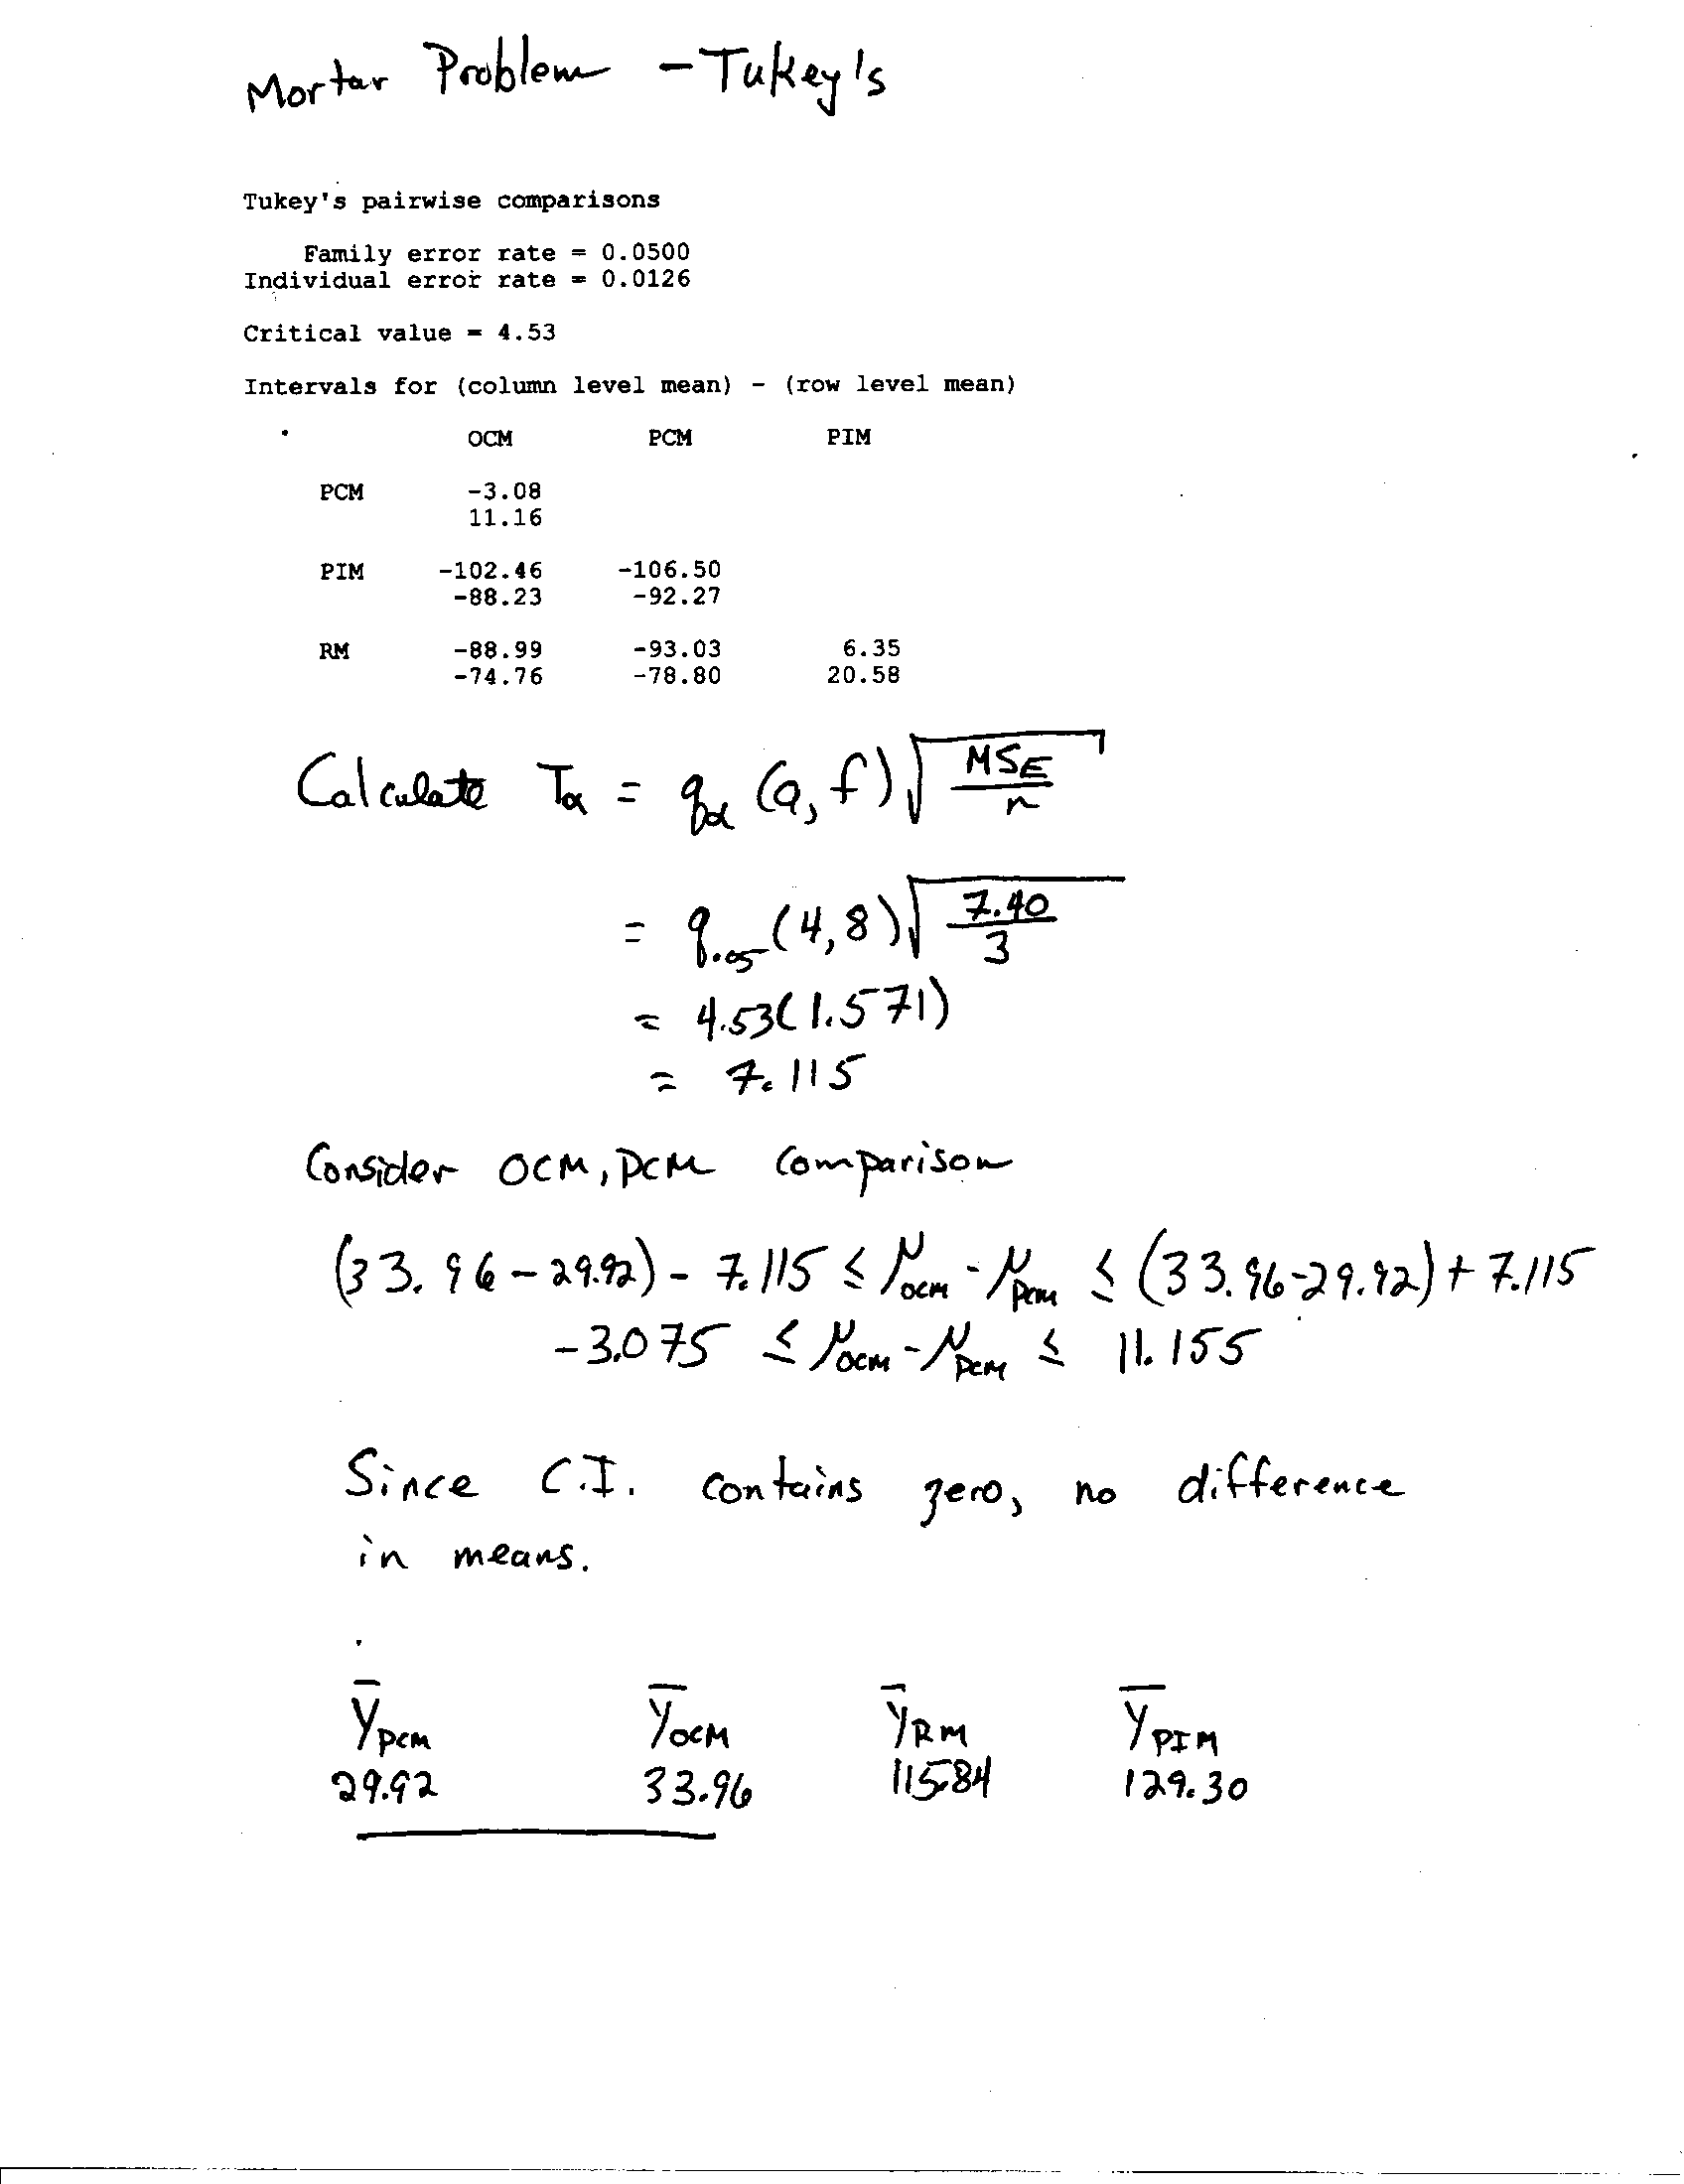 Mortar Problem - Tukey's
Tukey's pairwise comparisons
Family error rate = 0.0500
Individual error rate = 0.0126
Critical value = 4.53
Intervals for (column level mean) - (row level mean)
OCM PCM PIM
PCM -3.08
11.16
PIM -102.46 -106.50
-88.23 -92.27
RM -88.99 -93.03 6.35
-74.76 -78.80 20.58
Calculate Tα = qα (a, f) √(MSE/n)
= q.05 (4,8) √(7.40/3)
= 4.53(1.571)
= 7.115
Consider OCM, PCM Comparison
(33.96 - 29.92) - 7.115 ≤ μOCM - μPCM ≤ (33.96-29.92) + 7.115
-3.075 ≤ μOCM - μPCM ≤ 11.155
Since C.I. contains zero, no difference
in means.
ȲPCM ȲOCM ȲRM ȲPIM
29.92 33.96 115.84 129.30